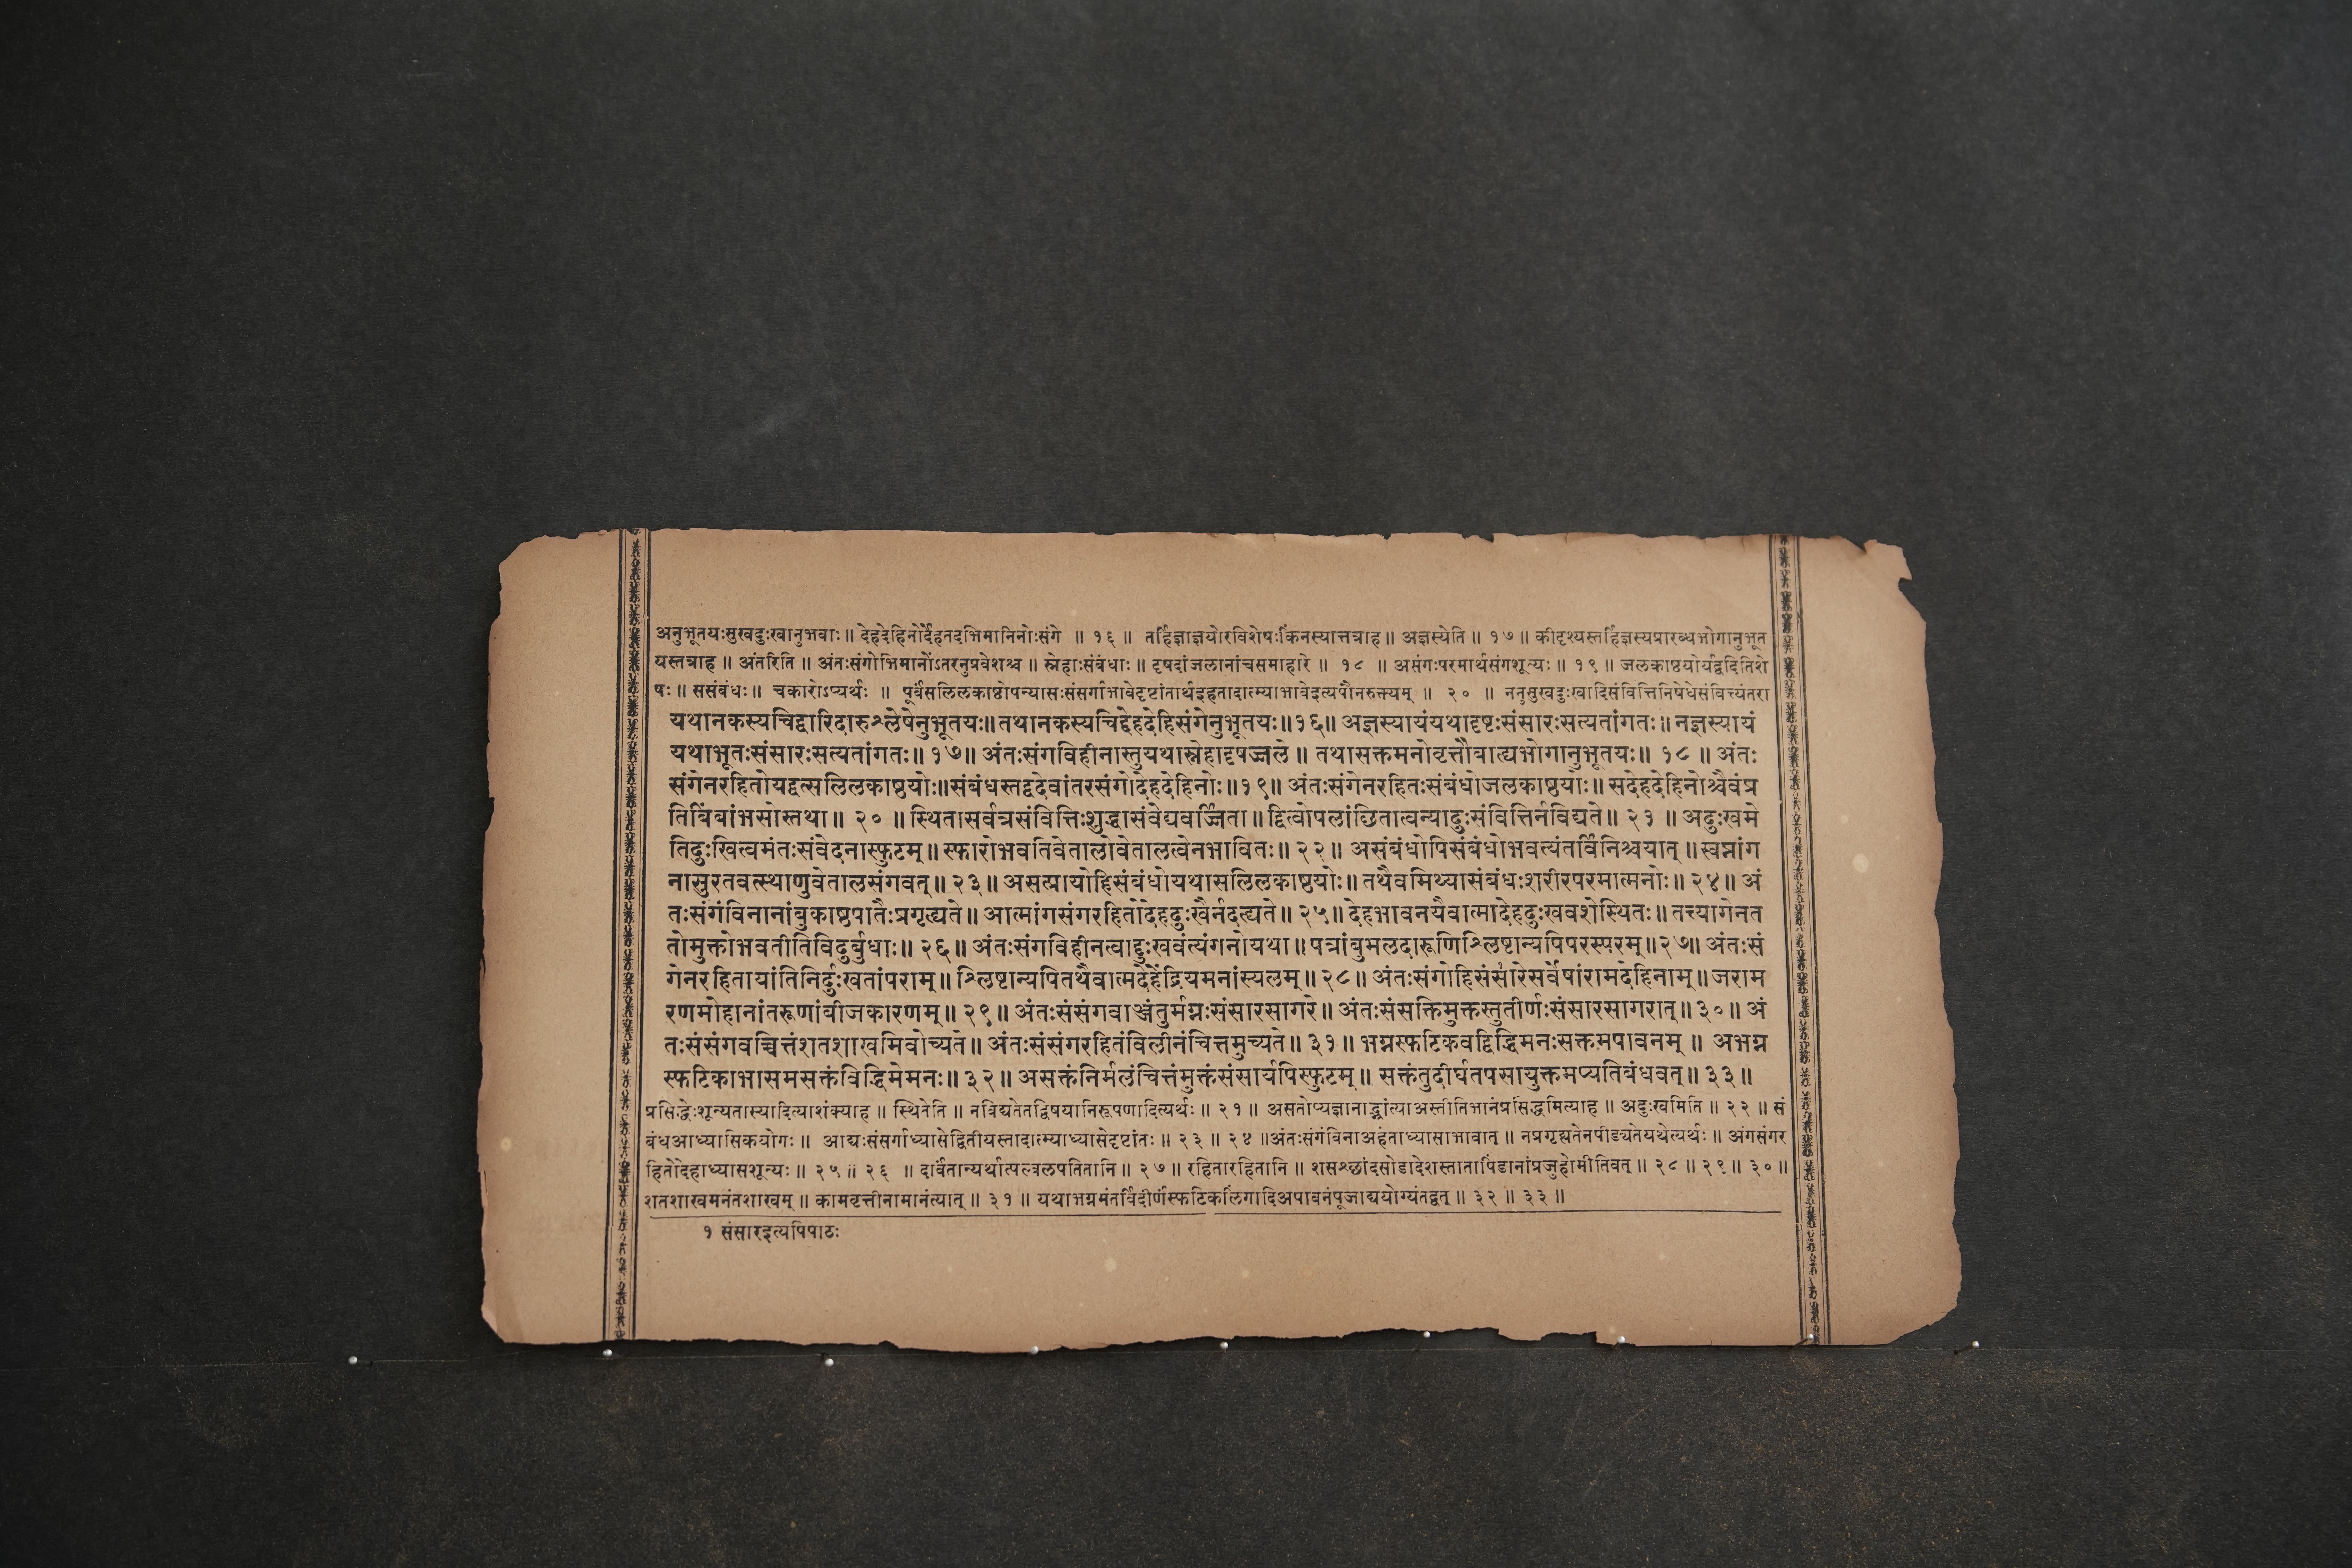 अनुभूतयःसुखदुःखानुभवाः॥ देहदेहिनोर्देहतदभिमानिनोःसंगे ॥ १६ ॥ तर्हिज्ञाज्ञयोरविशेषःकिंनस्यात्तत्राह॥ अज्ञस्येति॥ १७॥ कीदृश्यस्तर्हिज्ञस्यप्रारब्धभोगानुभूत
यस्तत्राह ॥ अंतरिति ॥ अंतःसंगोभिमानोंऽतरनुप्रवेशश्च ॥ स्नेहाःसंबंधाः ॥ दृषदांजलानांचसमाहारे ॥ १८ ॥ असंगःपरमार्थसंगशून्यः ॥ १९ ॥ जलकाष्ठयोर्यद्वदितिशे
षः॥ ससंबंधः॥ चकारोऽप्यर्थः ॥ पूर्वंसलिलकाष्ठोपन्यासःसंसर्गाभावेदृष्टांतार्थइहतादात्म्याभावेइत्यपौनरुक्त्यम् ॥ २० ॥ ननुसुखदुःखादिसंवित्तिनिषेधेसंविच्यंतरा
यथानकस्यचिद्वारिदारुश्लेषेनुभूतयः॥ तथानकस्यचिद्देहदेहिसंगेनुभूतयः॥१६॥ अज्ञस्यायंयथादृष्टःसंसारःसत्यतांगतः॥ नज्ञस्यायं
यथाभूतःसंसारःसत्यतांगतः॥ १७॥ अंतःसंगविहीनास्तुयथास्नेहादृषज्जले॥ तथासक्तमनोवृत्तौबाह्यभोगानुभूतयः॥ १८ ॥ अंतः
संगेनरहितोयद्वत्सलिलकाष्ठयोः॥संबंधस्तद्वदेवांतरसंगोदेहदेहिनोः॥१९॥ अंतःसंगेनरहितःसंबंधोजलकाष्ठयोः॥ सदेहदेहिनोश्चैवंप्र
तिबिंबांभसोस्तथा॥ २० ॥ स्थितासर्वत्रसंवित्तिःशुद्धासंवेद्यवर्ज्जिता॥ द्वित्वोपलांछितात्वन्यादुःसंवित्तिर्नविद्यते॥ २१ ॥ अदुःखमे
तिदुःखित्वमंतःसंवेदनास्फुटम्॥ स्फारोभवतिवेतालोवेतालत्वेनभावितः॥ २२॥ असंबंधोपिसंबंधोभवत्यंतर्विनिश्चयात् ॥ स्वप्नांग
नासुरतवत्स्थाणुवेतालसंगवत्॥ २३॥ असत्प्रायोहिसंबंधोयथासलिलकाष्ठयोः॥ तथैवमिथ्यासंबंधःशरीरपरमात्मनोः॥ २४॥ अं
तःसंगंविनानांबुकाष्ठपातैःप्रगृह्यते॥ आत्मांगसंगरहितोदेहदुःखैर्नदह्यते॥ २५॥ देहभावनयैवात्मादेहदुःखवशेस्थितः॥ तत्त्यागेनत
तोमुक्तोभवतीतिविदुर्बुधाः॥ २६॥ अंतःसंगविहीनत्वाद्दुःखवंत्यंगनोयथा॥ पत्रांबुमलदारूणिश्लिष्टान्यपिपरस्परम्॥२७॥ अंतःसं
गेनरहितायांतिनिर्दुःखतांपराम्॥ श्लिष्टान्यपितथैवात्मदेहेंद्रियमनांस्यलम्॥ २८॥ अंतःसंगोहिसंसारेसर्वेषांरामदेहिनाम्॥ जराम
रणमोहानांतरूणांबीजकारणम्॥ २९॥ अंतःसंसंगवाञ्जंतुर्मग्नःसंसारसागरे॥ अंतःसंसक्तिमुक्तस्तुतीर्णःसंसारसागरात्॥ ३०॥ अं
तःसंसंगवच्चित्तंशतशाखमिवोच्यते॥ अंतःसंसंगरहितंविलीनंचित्तमुच्यते॥ ३१॥ भग्नस्फटिकवद्विद्धिमनःसक्तमपावनम् ॥ अभग्न
स्फटिकाभासमसक्तंविद्धिमेमनः॥ ३२॥ असक्तंनिर्मलंचित्तंमुक्तंसंसार्यपिस्फुटम्॥ सक्तंतुदीर्घतपसायुक्तमप्यतिबंधवत्॥ ३३॥
प्रसिद्धेःशून्यतास्यादित्याशंक्याह ॥ स्थितेति ॥ नविद्यतेतद्विषयानिरूपणादित्यर्थः ॥ २१ ॥ असतोप्यज्ञानाद्भ्रांत्याअस्तीतिभानंप्रसिद्धमित्याह ॥ अदुःखमिति ॥ २२ ॥ सं
बंधआध्यासिकयोगः ॥ आद्यःसंसर्गाध्यासेद्वितीयस्तादात्म्याध्यासेदृष्टांतः ॥ २३ ॥ २४ ॥अंतःसंगंविनाअहंताध्यासाभावात् ॥ नप्रगृह्यतेनपीड्यतेयथेत्यर्थः ॥ अंगसंगर
हितोदेहाध्यासशून्यः ॥ २५ ॥ २६ ॥ दार्वंतान्यर्थात्पल्वलपतितानि ॥ २७ ॥ रहितारहितानि ॥ शसश्छांदसोडादेशस्तातापिंडानांप्रजुहोमीतिवत् ॥ २८ ॥ २९ ॥ ३० ॥
शतशाखमनंतशाखम् ॥ कामवृत्तीनामानंत्यात् ॥ ३१ ॥ यथाभग्नमंतर्विदीर्णंस्फटिकलिंगादिअपावनंपूजाद्ययोग्यंतद्वत् ॥ ३२ ॥ ३३ ॥
१ संसारइत्यपिपाठः